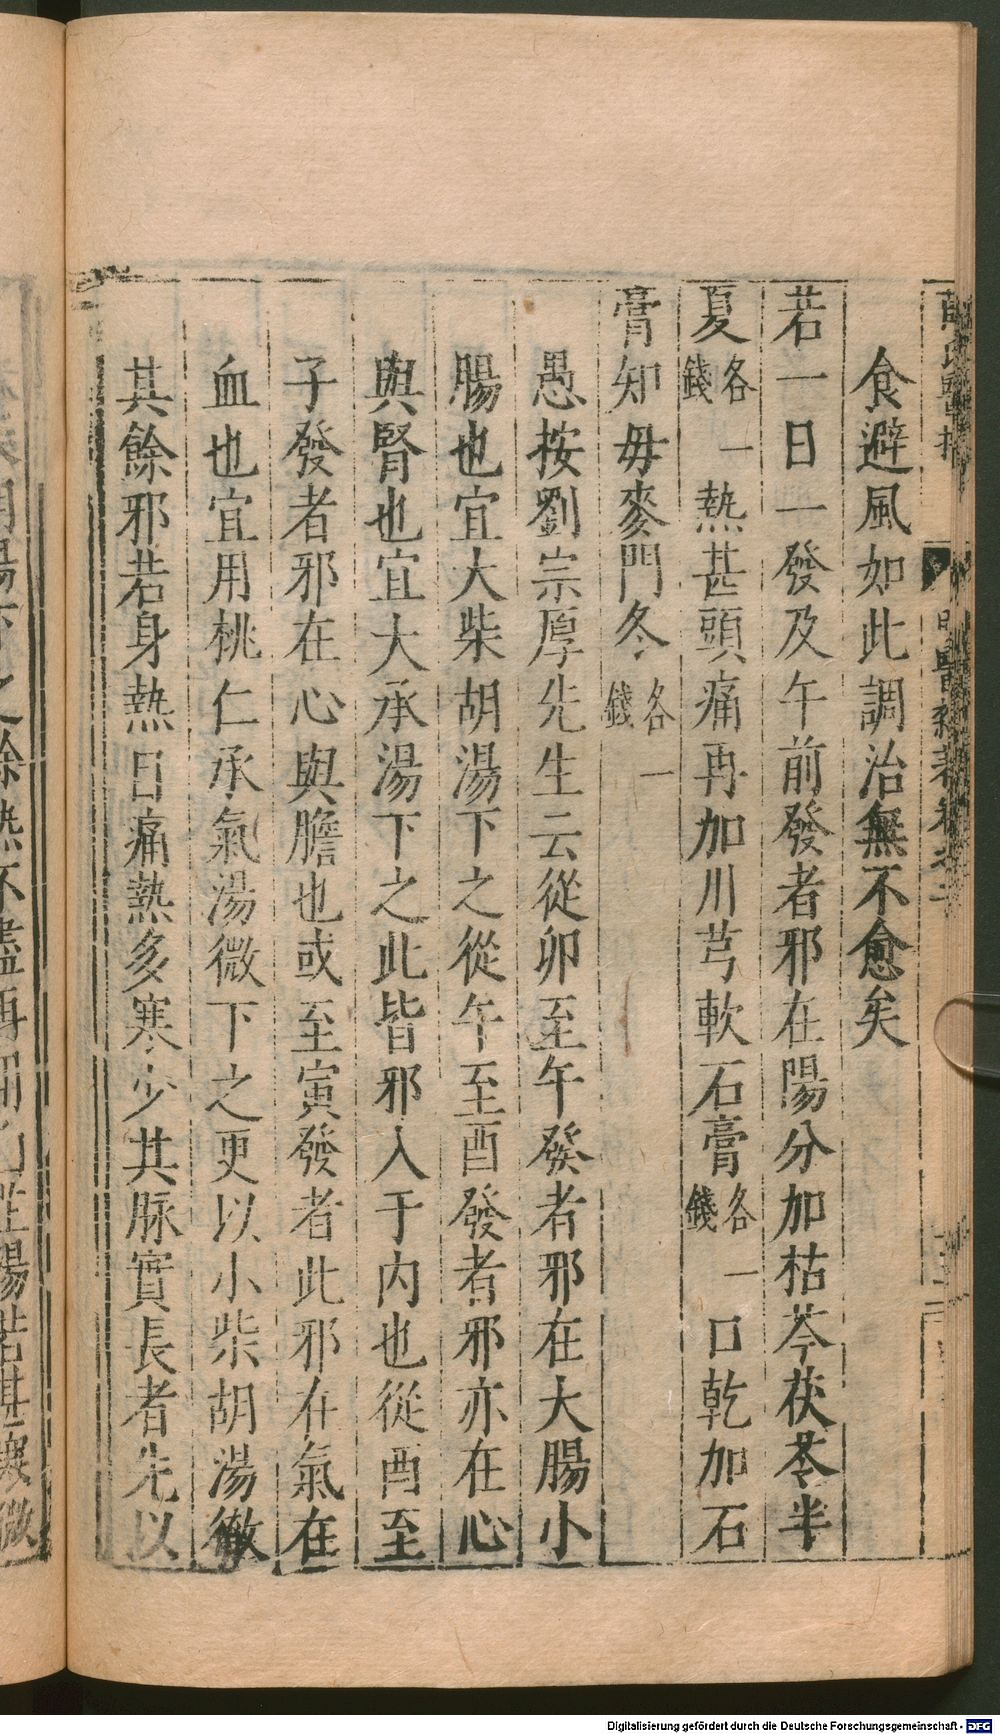 食避風如此調治無不愈矣
若一日一發及午前發者邪在陽分加枯芩茯苓半
夏各一錢熱甚頭痛再加川芎軟石膏各一錢口乾加石
膏知毋麥門冬各一錢
愚按劉宗厚先生云從卯至午發者邪在大腸小
腸也宜大柴胡湯下之從午至酉發者邪亦在心
與腎也宜大承湯下之此皆邪入于内也從酉至
子發者邪在心與膽也或至寅發者此邪在氣在
血也宜用桃仁承氣湯微下之更以小柴胡湯徹
其餘邪若身熱目痛熱多寒少其脉實長者先以
Digitalisierung gefördert durch die Deutsche Forschungsgemeinschaft - DFG